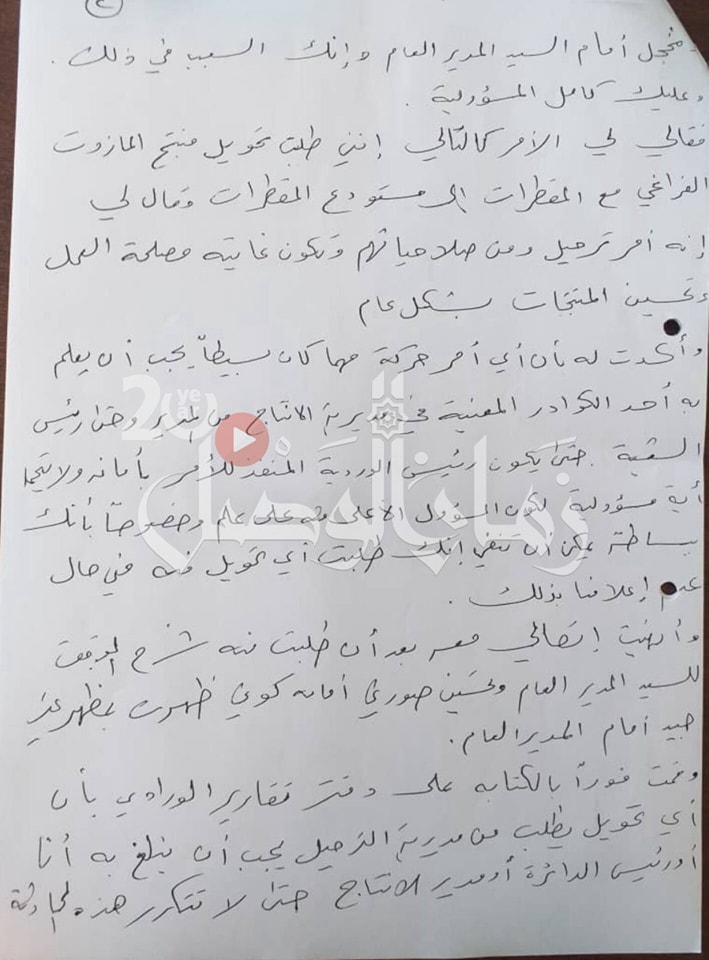 ٢
ومخجل أمام السيد المدير العام وإنك السبب في ذلك .
وعليك كامل المسؤولية .
فقالي لي الأمر كالتالي إنني طلبت تحويل منتج المازوت
الفراغي مع المقطرات إلى مستودع المقطرات وقال لي
إنه أمر ترحيل ومن صلاحياتهم وتكون غايته مصلحة العمل
وتحسين المنتجات بشكل عام
وأكدت له بأن أي أمر حركة مهما كان بسيطاً يجب أن يعلم
به أحد الكوادر المعنية في مديرية الانتاج من المدير وحتى رئيس
الشعبة . حتى يكون رئيس الوردية المنفذ للأمر بأمانه ولا يتحمل
أية مسؤولية لكون المسؤول الأعلى منه على علم وخصوصاً بأنك
ببساطة يمكن أن تنفي إنك طلبت أي تحويل منه في حال
عدم إعلامنا بذلك .
وأنهيت إتصالي معه بعد أن طلبت منه شرح الموقف
للسيد المدير العام وتحسين صورتي أمامه كوني ظهرت بمظهر غير
جيد أمام المدير العام .
وقمت فوراً بالكتابه على دفتر تقارير الورادي بأن
أي تحويل يطلب من مديرية الترحيل يجب أن يبلغ به أنا
أو رئيس الدائرة أو مدير الانتاج حتى لا تتكرر هذه الحادثة
20 years
زمان الوصل